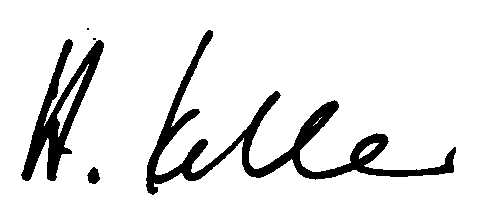 H. Keller